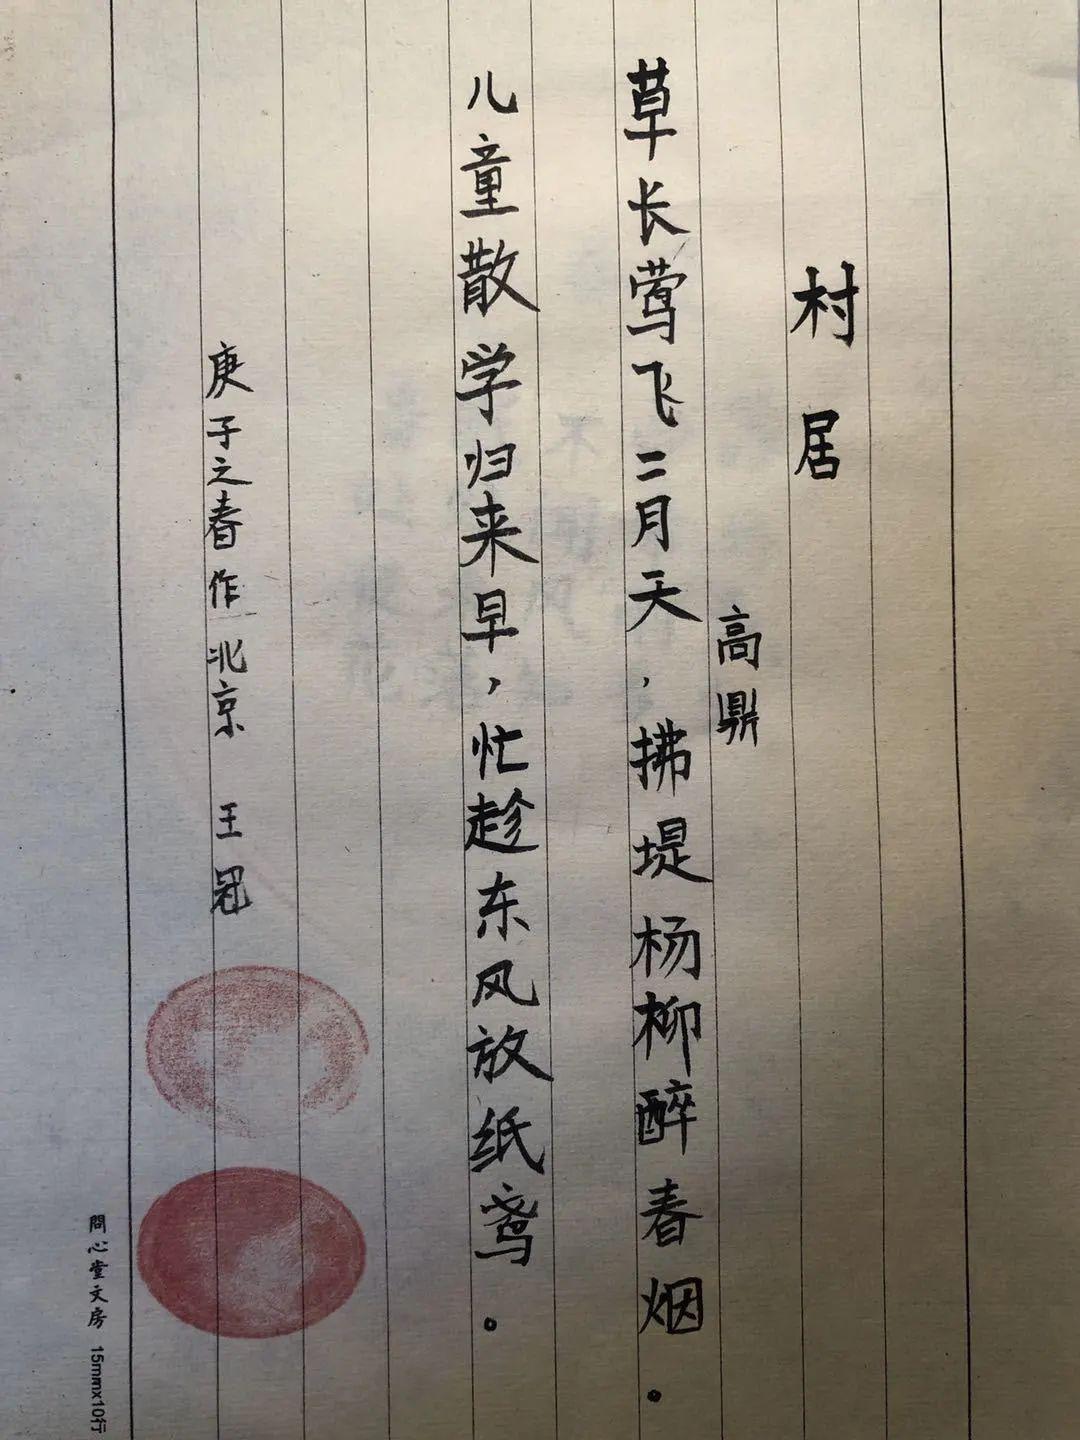 村居
高鼎
草长莺飞二月天，拂堤杨柳醉春烟。
儿童散学归来早，忙趁东风放纸鸢。
庚子之春作北京 王冠
問心堂文房 15mmx10行